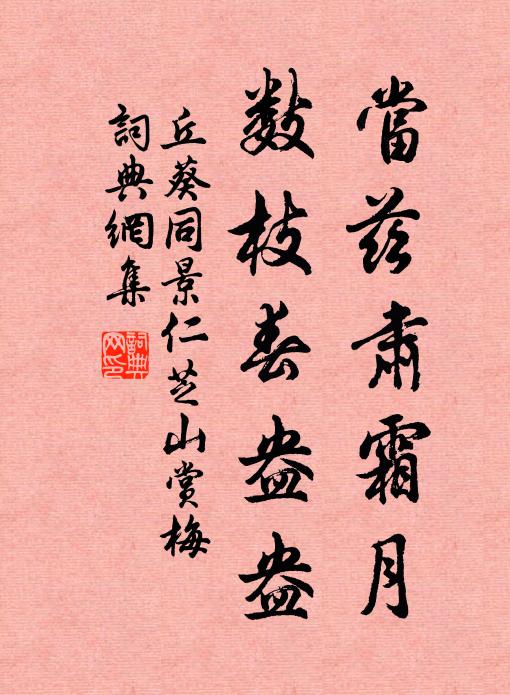 當茲肅霜月
數枝春盎盎
丘葵同景仁芝山賞梅
詞典網集
詞典网印